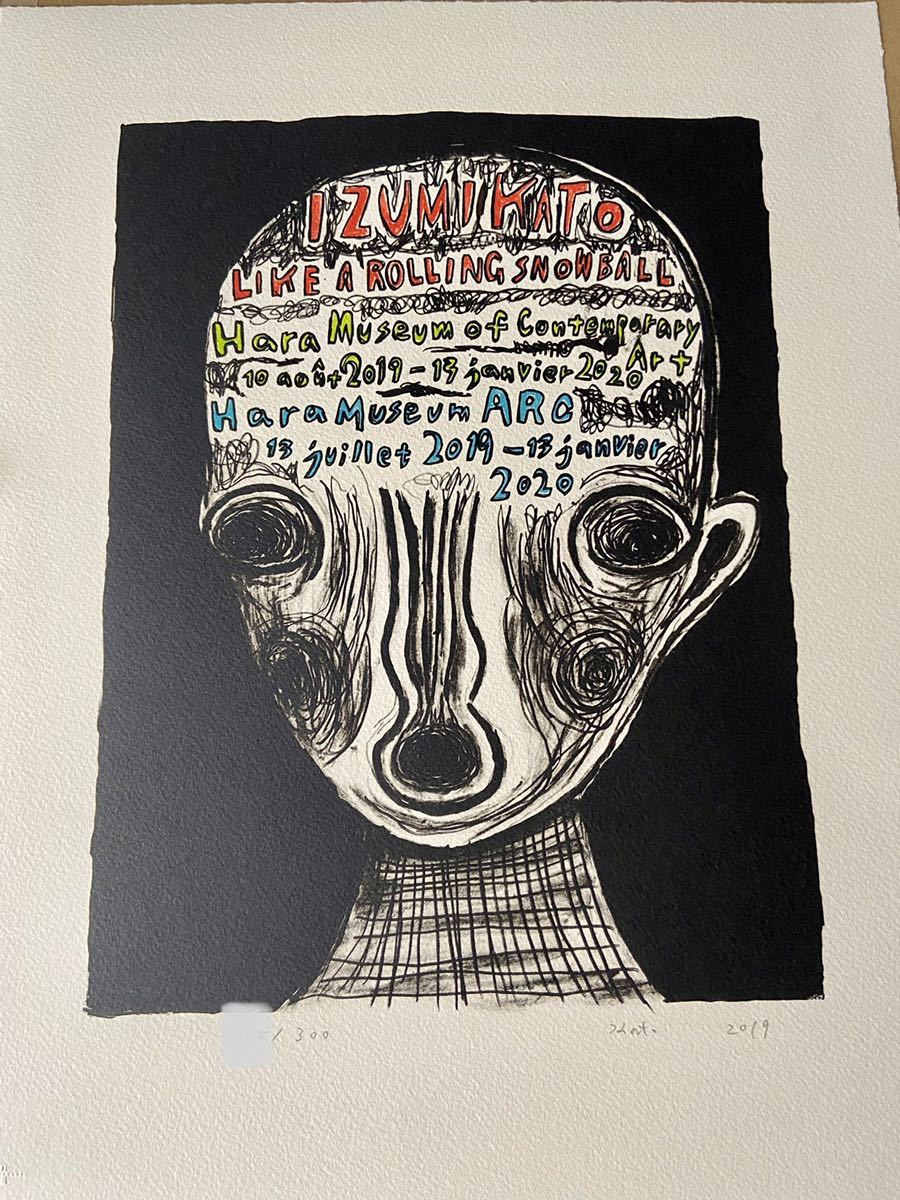 IZUMI KATO
LIKE A ROLLING SNOWBALL
Hara Museum of Contemporary
Art
10 août 2019 - 13 janvier 2020
Hara Museum ARC
13 juillet 2019 - 13 janvier
2020
/ 300 Kato. 2019